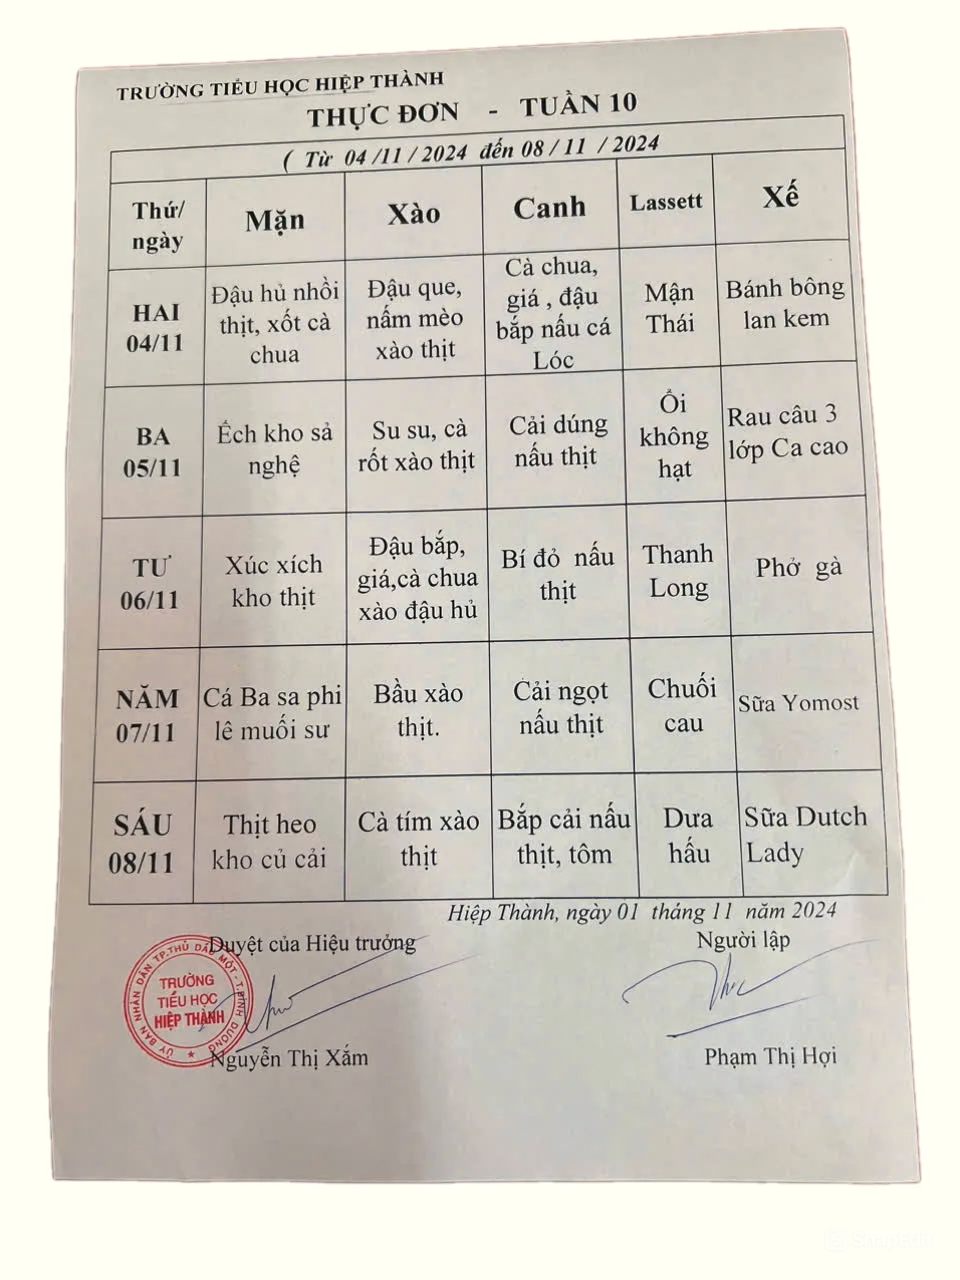 TRƯỜNG TIỂU HỌC HIỆP THÀNH
THỰC ĐƠN - TUẦN 10
( Từ 04 /11 / 2024 đến 08 / 11 / 2024
Thứ/
ngày
Mặn
Xào
Canh
Lassett
Xế
HAI
04/11
Đậu hủ nhồi
thịt, xốt cà
chua
Đậu que,
nấm mèo
xào thịt
Cà chua,
giá , đậu
bắp nấu cá
Lóc
Mận
Thái
Bánh bông
lan kem
BA
05/11
Ếch kho sả
nghệ
Su su, cà
rốt xào thịt
Cải dúng
nấu thịt
Ổi
không
hạt
Rau câu 3
lớp Ca cao
TƯ
06/11
Xúc xích
kho thịt
Đậu bắp,
giá,cà chua
xào đậu hủ
Bí đỏ nấu
thịt
Thanh
Long
Phở gà
NĂM
07/11
Cá Ba sa phi
lê muối sư
Bầu xào
thịt.
Cải ngọt
nấu thịt
Chuối
cau
Sữa Yomost
SÁU
08/11
Thịt heo
kho củ cải
Cà tím xào
thịt
Bắp cải nấu
thịt, tôm
Dưa
hấu
Sữa Dutch
Lady
Hiệp Thành, ngày 01 tháng 11 năm 2024
Duyệt của Hiệu trưởng
Người lập
ỦY BAN NHÂN DÂN TP.THỦ DẦU MỘT - T.BÌNH DƯƠNG
TRƯỜNG
TIỂU HỌC
HIỆP THÀNH
Nguyễn Thị Xắm
Phạm Thị Hợi